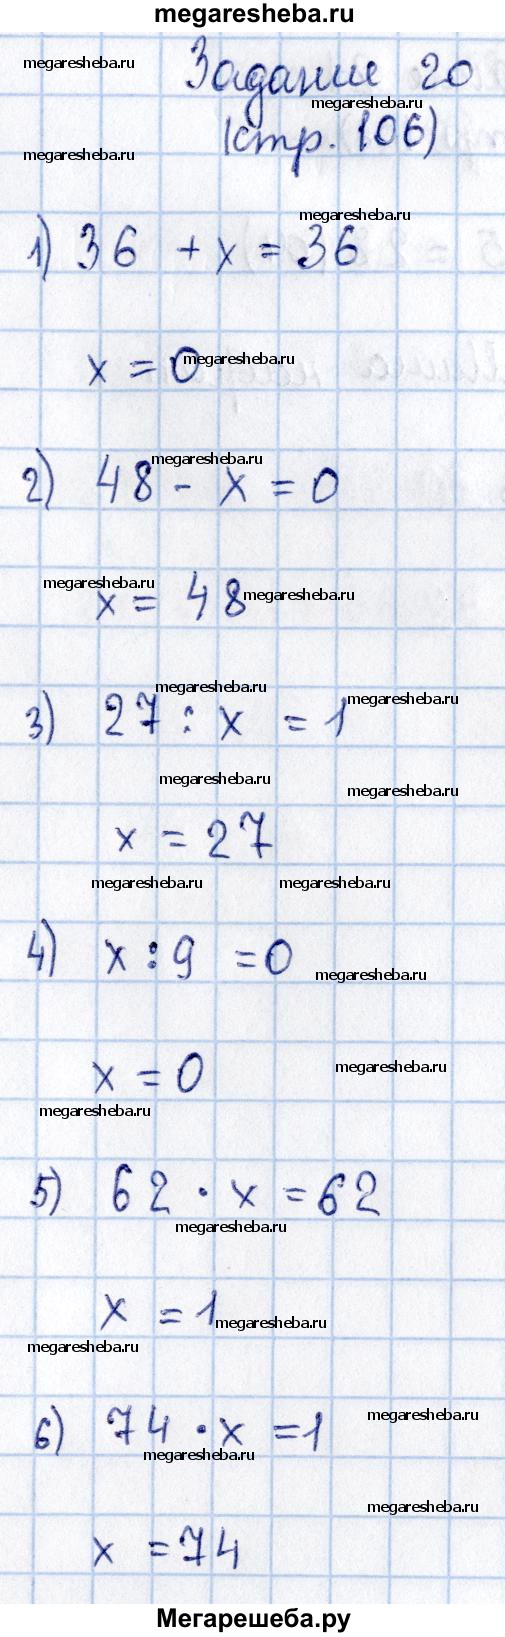 megaresheba.ru
megaresheba.ru
Задание 20
megaresheba.ru
megaresheba.ru
(стр. 106)
megaresheba.ru
1) 36 + x = 36
megaresheba.ru
x = 0
megaresheba.ru
2) 48 - x = 0
megaresheba.ru
megaresheba.ru
x = 48
megaresheba.ru
megaresheba.ru
3) 27 : x = 1
megaresheba.ru
megaresheba.ru
x = 27
megaresheba.ru
megaresheba.ru
4) x : 9 = 0
megaresheba.ru
megaresheba.ru
x = 0
megaresheba.ru
5) 62 · x = 62
megaresheba.ru
x = 1
megaresheba.ru
megaresheba.ru
megaresheba.ru
6) 74 · x = 1
megaresheba.ru
megaresheba.ru
x = 74
Мегарешеба.ру